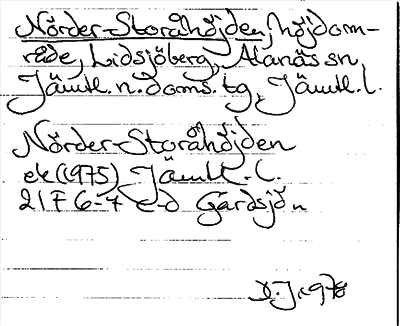 Nörder-Storåhöjden, höjdom-
råde, Lidsjöberg, Alanäs sn,
Jämtl. n. doms. tg, Jämtl. l.
Nörder-Storåhöjden
ek (1975) Jämtl. l.
21 F 6-7 c-d Gårdsjön
1978